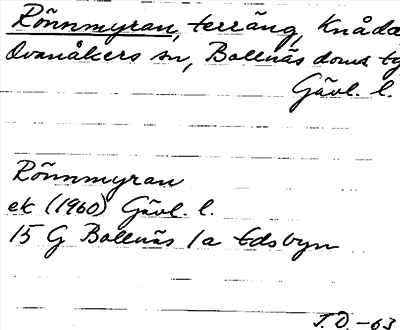 Rönnmyran, terräng, Knåda
Ovanåkers sn, Bollnäs doms tg
Gävl. l.
Rönnmyran
ek (1960) Gävl. l.
15 G Bollnäs 1a Edsbyn
J. D. -63